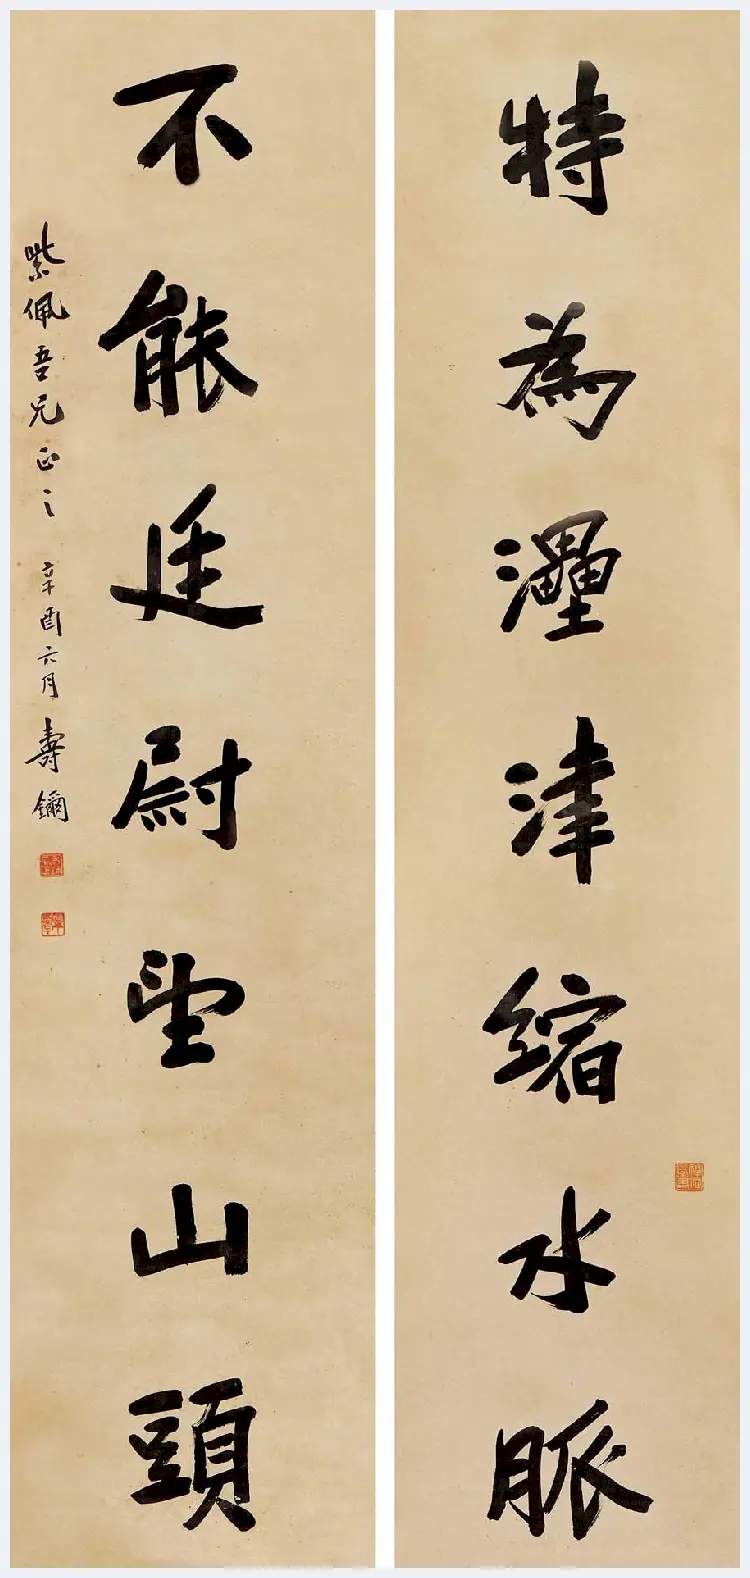 特為灅津縮水脈
不能廷尉望山頭
紫佩吾兄正之 辛酉六月 壽鏞